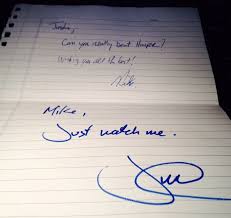 Justin,
Can you really beat Harper?
Wishing you all the best!
Mike,
Just watch me.